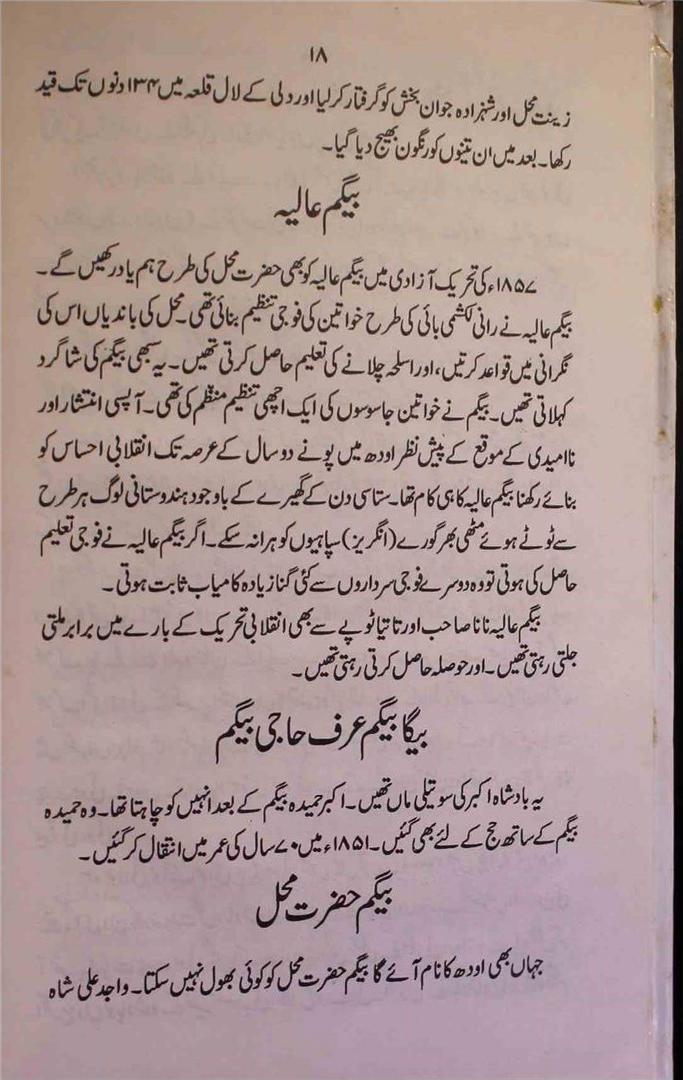 ۱۸
زینت محل اور شہزادہ جواں بخش کو گرفتار کر لیا اور دلی کے لال قلعہ میں ۱۳۴ دنوں تک قید
رکھا۔ بعد میں ان تینوں کو رنگون بھیج دیا گیا۔
بیگم عالیہ
۱۸۵۷ء کی تحریک آزادی میں بیگم عالیہ کو بھی حضرت محل کی طرح ہم یاد رکھیں گے۔
بیگم عالیہ نے رانی لکشمی بائی کی طرح خواتین کی فوجی تنظیم بنائی تھی۔ محل کی باندیاں اس کی
نگرانی میں قواعد کرتیں، اور اسلحہ چلانے کی تعلیم حاصل کرتی تھیں۔ یہ سبھی بیگم کی شاگرد
کہلاتی تھیں۔ بیگم نے خواتین جاسوسوں کی ایک اچھی تنظیم منظم کی تھی۔ آپسی انتشار اور
ناامیدی کے موقع کے پیش نظر اودھ میں پونے دو سال کے عرصہ تک انقلابی احساس کو
بنائے رکھنا بیگم عالیہ کا ہی کام تھا۔ ستاسی دن کے گھیرے کے باوجود ہندوستانی لوگ ہر طرح
سے ٹوٹے ہوئے مٹھی بھر گورے (انگریز) سپاہیوں کو ہرا نہ سکے۔ اگر بیگم عالیہ نے فوجی تعلیم
حاصل کی ہوتی تو وہ دوسرے فوجی سرداروں سے کئی گنا زیادہ کامیاب ثابت ہوتی۔
بیگم عالیہ نانا صاحب اور تاتیا ٹوپے سے بھی انقلابی تحریک کے بارے میں برابر ملتی
جلتی رہتی تھیں۔ اور حوصلہ حاصل کرتی رہتی تھیں۔
بیگا بیگم عرف حاجی بیگم
یہ بادشاہ اکبر کی سوتیلی ماں تھیں۔ اکبر حمیدہ بیگم کے بعد انہیں کو چاہتا تھا۔ وہ حمیدہ
بیگم کے ساتھ حج کے لئے بھی گئیں۔ ۱۸۵۱ء میں ۷۰ سال کی عمر میں انتقال کر گئیں۔
بیگم حضرت محل
جہاں بھی اودھ کا نام آئے گا بیگم حضرت محل کو کوئی بھول نہیں سکتا۔ واجد علی شاہ